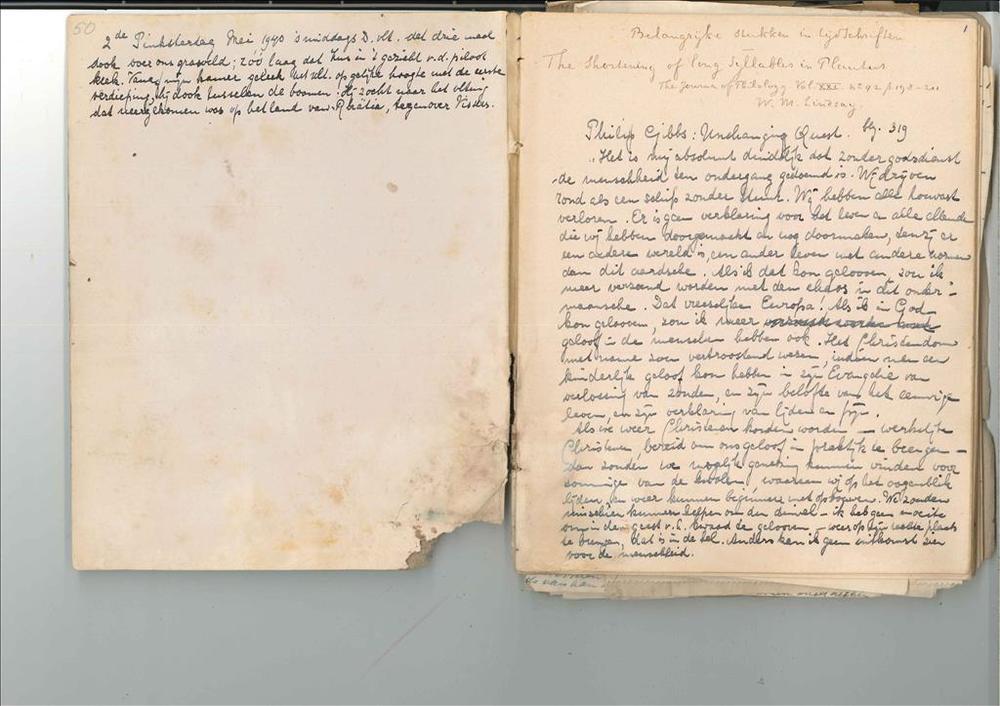 50
2de Pinksterdag Mei 1940 's middags D. vlt. dat drie maal
dook over ons grasveld; zóó laag dat Huis in 't gezicht v.d. piloot
keek. Vanaf mijn kamer geleek het vlt. op gelijke hoogte met de eerste
verdieping, hij dook tusschen de boomen. Hij zocht naar het vltuig
dat neergekomen was op het land van Rhätia, tegenover Visser.
1
Belangrijke stukken in tijdschriften
The Shortening of long Sillables in Plautus
The Journal of Philology Vol. XXI. No 42 p. 198-201
W. M. Lindsay.
Philip Gibbs: Unchanging Quest. blz. 319
„Het is mij absoluut duidelijk dat zonder godsdienst
de menschheid ten ondergang gedoemd is. Wij drijven
rond als een schip zonder stuur. Wij hebben alle houvast
verloren. Er is geen verklaring voor het leven en alle ellende
die wij hebben doorgemaakt en nog doormaken, tenzij er
een andere wereld is, een ander leven met andere normen
dan dit aardsche. Als ik dat kon gelooven, zou ik
meer verzoend worden met den chaos in dit onder-
maansche. Dat vreeselijke Europa! Als ik in God
kon gelooven, zou ik meer
geloof in de menschen hebben ook. Het Christendom
met name zou vertroostend wezen, indien men een
kinderlijk geloof kon hebben in zijn Evangelie van
verlossing van zonden, en zijn belofte van het eeuwige
leven, en zijn verklaring van lijden en pijn.
Als we weer Christenen konden worden — werkelijke
Christenen, bereid om ons geloof in praktijk te brengen —
dan zouden we mogelijk genezing kunnen vinden voor
sommige van de kwalen, waaraan wij op het oogenblik
lijden, en weer kunnen beginnen met opbouwen. We zouden
misschien kunnen helpen om den duivel — ik heb geen moeite
om in den geest v.h. kwaad te gelooven — weer op zijn plaats
te brengen, dat is in de hel. Anders kan ik geen uitkomst zien
voor de menschheid.